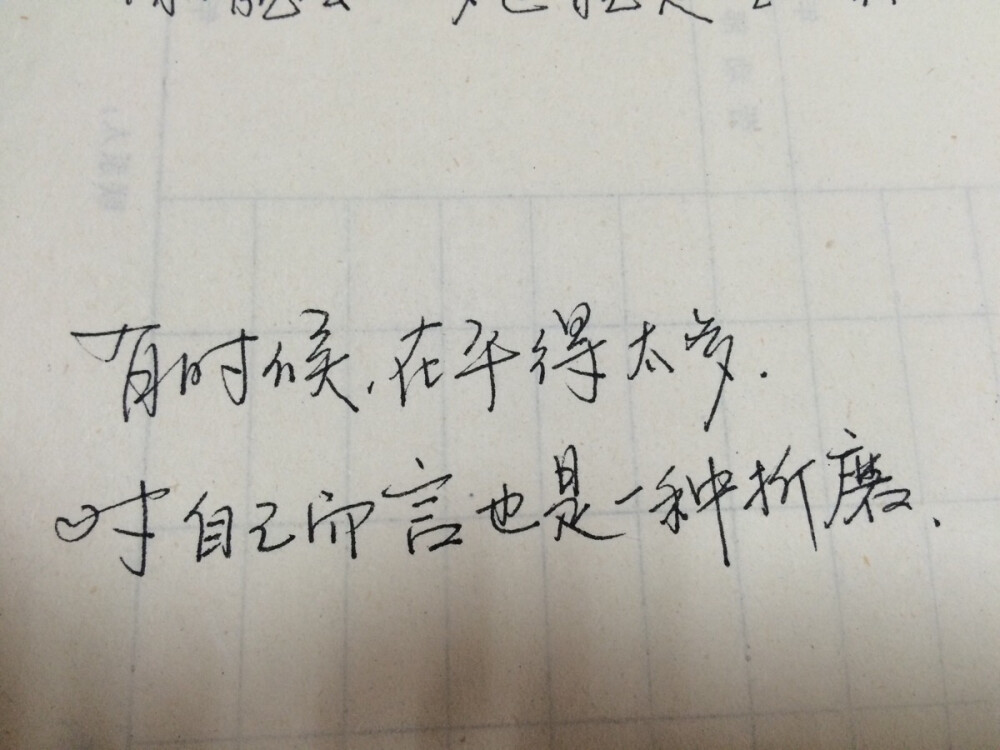 有时候,在乎得太多.
对自己而言也是一种折磨.